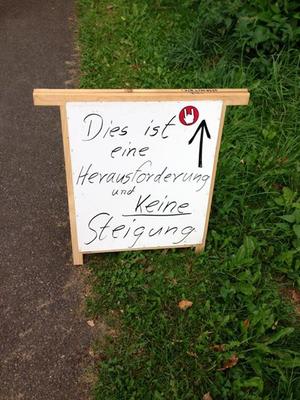 Dies ist
eine
Herausforderung
und
Keine
Steigung